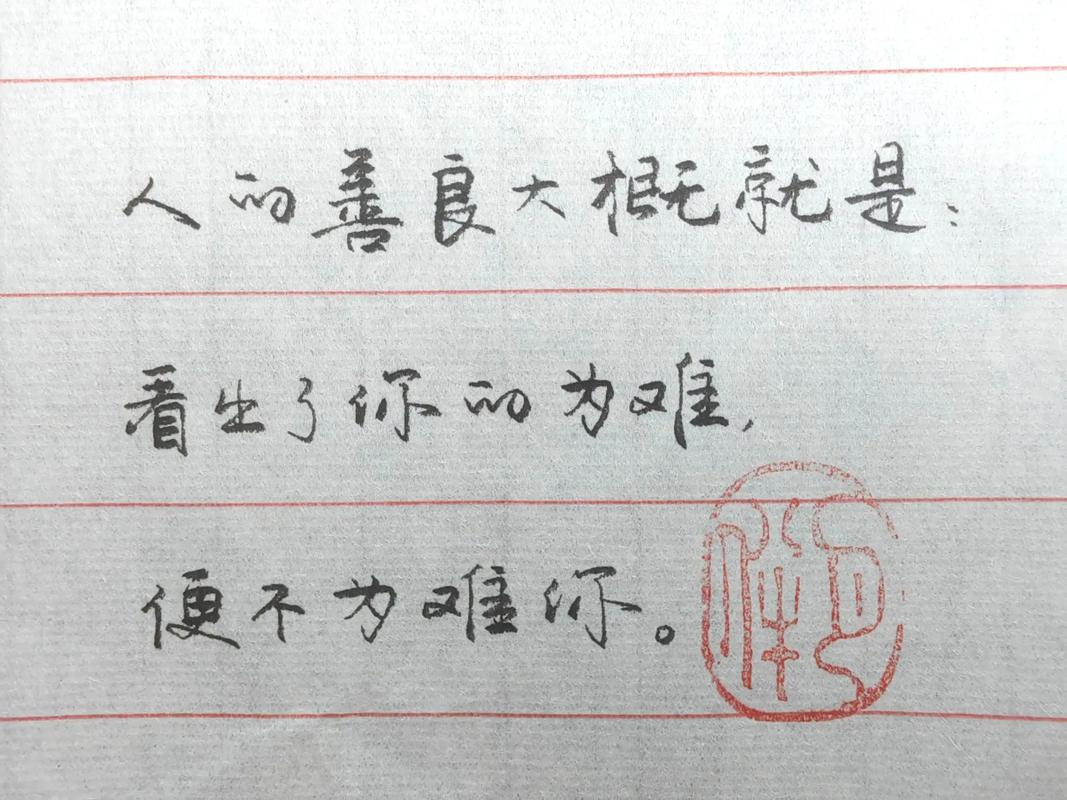 人的善良大概就是：
看出了你的为难，
便不为难你。